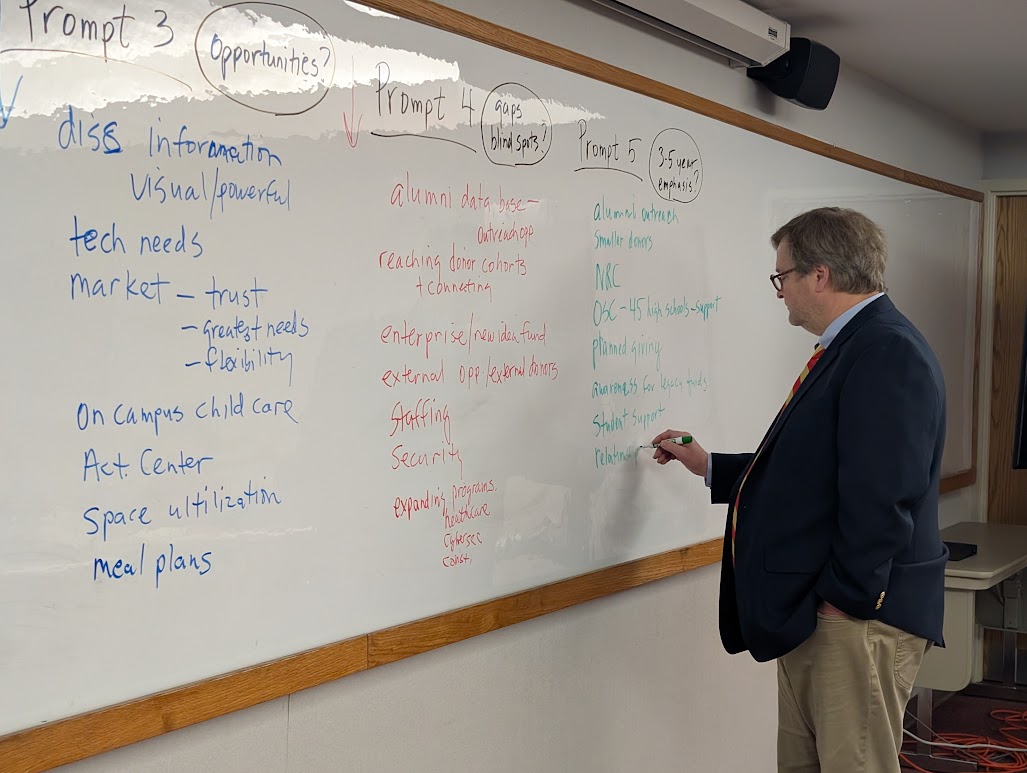 Prompt 3
Opportunities?
diss information
visual/powerful
tech needs
market - trust
- greatest needs
- flexibility
On campus child care
Act. Center
Space ultilization
meal plans
Prompt 4
gaps
blind spots?
alumni data base -
outreach opp
reaching donor cohorts
+ connecting
enterprise/new idea fund
external opp/external donors
Staffing
Security
expanding programs.
healthcare
Cybersec
const.
Prompt 5
3-5 year
emphasis?
alumni outreach
Smaller donors
NRC
OSC - 45 high schools - support
planned giving
awareness for legacy funds
Student support